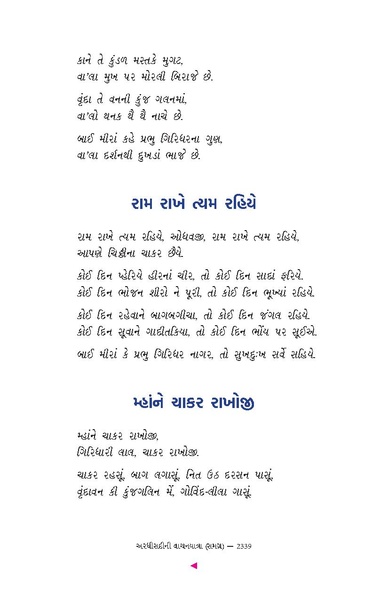 કાને તે કુંડળ મસ્તકે મુગટ,
વા'લા મુખ પર મોરલી બિરાજે છે.
વૃંદા તે વનની કુંજ ગલનમાં,
વા'લો થનક થૈ થૈ નાચે છે.
બાઈ મીરાં કહે પ્રભુ ગિરિધરના ગુણ,
વા'લા દર્શનથી દુખડાં ભાજે છે.
રામ રાખે ત્યમ રહિયે
રામ રાખે ત્યમ રહિયે, ઓધવજી, રામ રાખે ત્યમ રહિયે,
આપણે ચિઠ્ઠીના ચાકર છૈયે.
કોઈ દિન પ્હેરિયે હીરનાં ચીર, તો કોઈ દિન સાદાં ફરિયે.
કોઈ દિન ભોજન શીરો ને પૂરી, તો કોઈ દિન ભૂખ્યાં રહિયે.
કોઈ દિન રહેવાને બાગબગીચા, તો કોઈ દિન જંગલ રહિયે.
કોઈ દિન સૂવાને ગાદીતકિયા, તો કોઈ દિન ભોંય પર સૂઈએ.
બાઈ મીરાં કે પ્રભુ ગિરિધર નાગર, તો સુખદુઃખ સર્વે સહિયે.
મ્હાંને ચાકર રાખોજી
મ્હાંને ચાકર રાખોજી,
ગિરિધારી લાલ, ચાકર રાખોજી.
ચાકર રહસૂં, બાગ લગાસૂં, નિત ઉઠ દરસન પાસૂં,
વૃંદાવન કી કુંજગલિન મેં, ગોવિંદ-લીલા ગાસૂં.
અરધીસદીની વાચનયાત્રા (સમગ્ર) — 2339